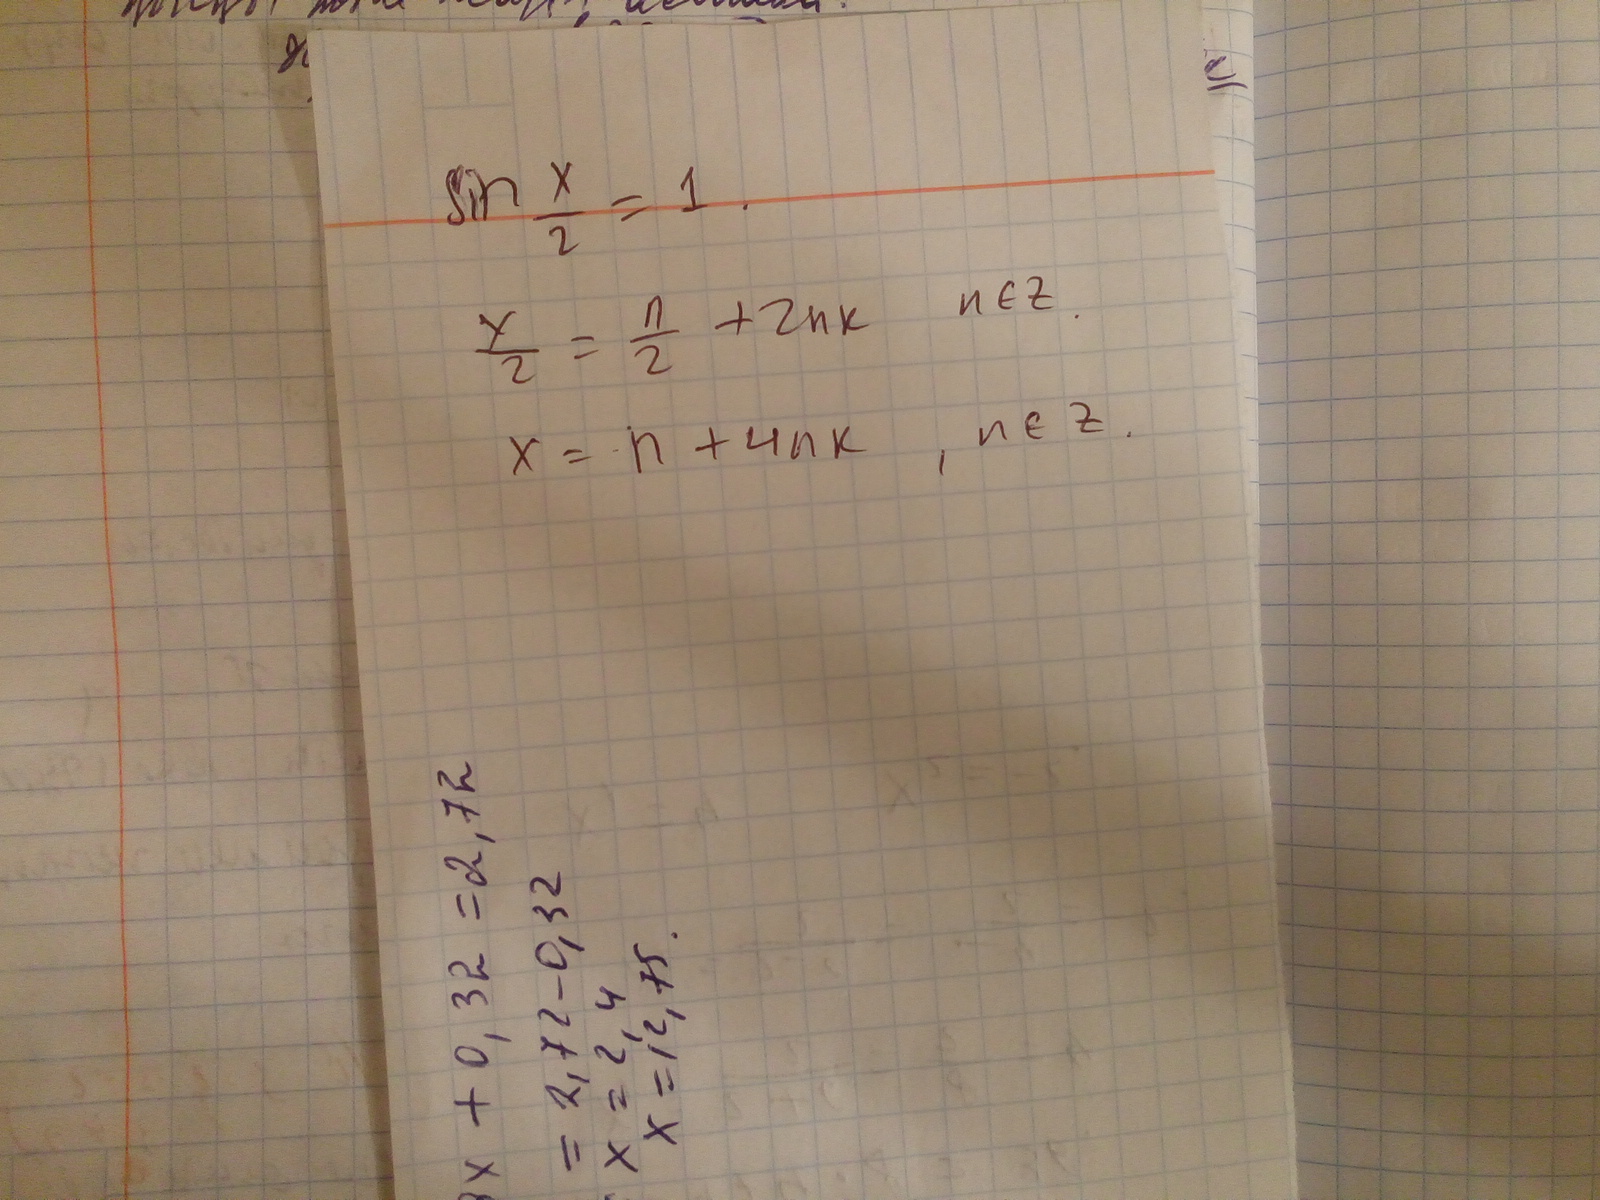 sin x/2 = 1.
x/2 = π/2 + 2πk n∈Z.
x = π + 4πk , n∈Z.
x + 0,32 = 2,72
= 2,72 - 0,32
x = 2,4
x = 12,75.